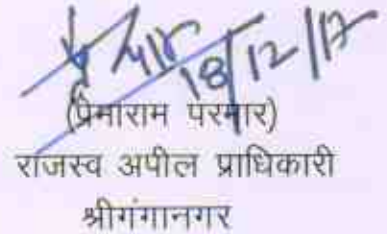 18/12/17
(प्रेमाराम परमार)
राजस्व अपील प्राधिकारी
श्रीगंगानगर